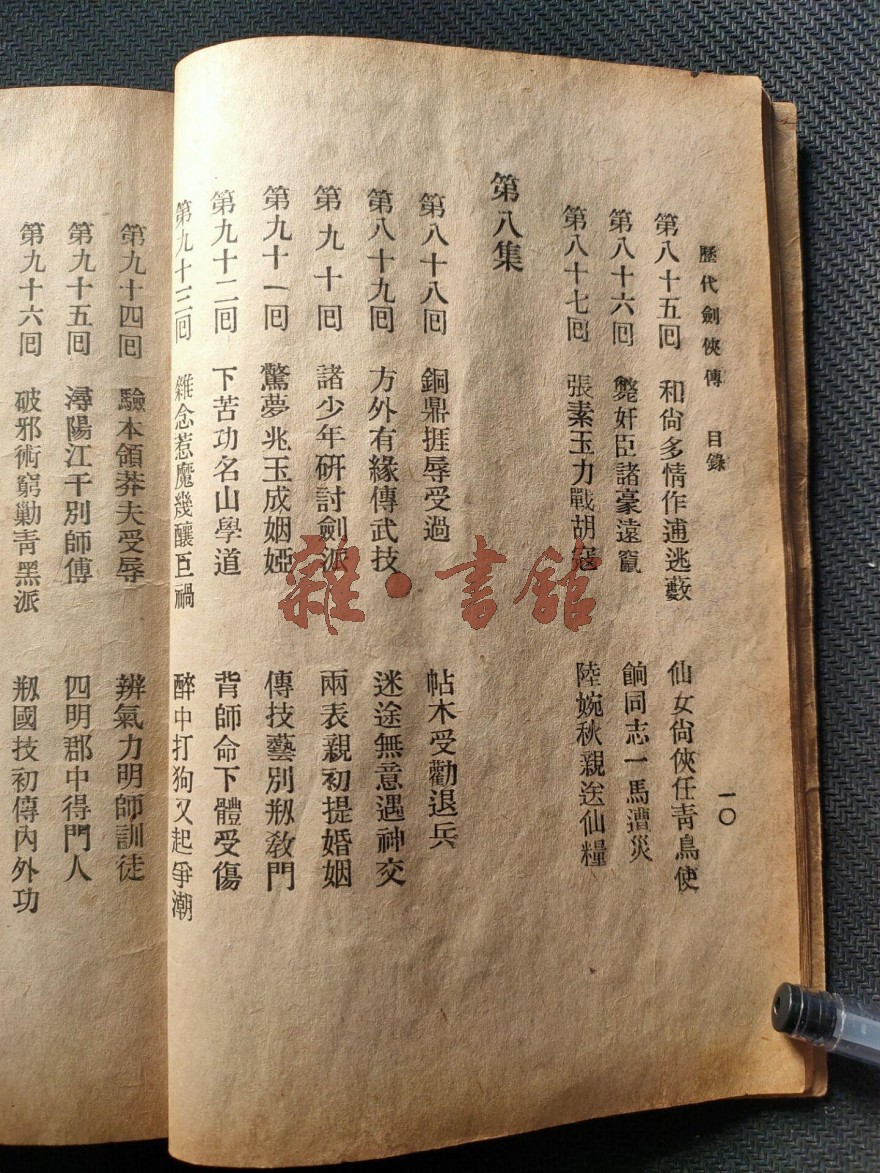 歷代劍俠傳　目錄　一〇
第八十五囘　和尙多情作逋逃藪　仙女尙俠任靑鳥使
第八十六囘　斃奸臣諸豪遠竄　餉同志一馬遭災
第八十七囘　張素玉力戰胡寇　陸婉秋親送仙糧
第八集
第八十八囘　銅鼎捱辱受過　帖木受勸退兵
第八十九囘　方外有緣傳武技　迷途無意遇神交
第九十囘　諸少年硏討劍派　兩表親初提婚姻
第九十一囘　驚夢兆玉成姻婭　傳技藝別剏敎門
第九十二囘　下苦功名山學道　背師命下體受傷
第九十三囘　雜念惹魔幾釀巨禍　醉中打狗又起爭潮
第九十四囘　驗本領莽夫受辱　辨氣力明師訓徒
第九十五囘　潯陽江干別師傅　四明郡中得門人
第九十六囘　破邪術窮勦靑黑派　剏國技初傳內外功
雜·書館